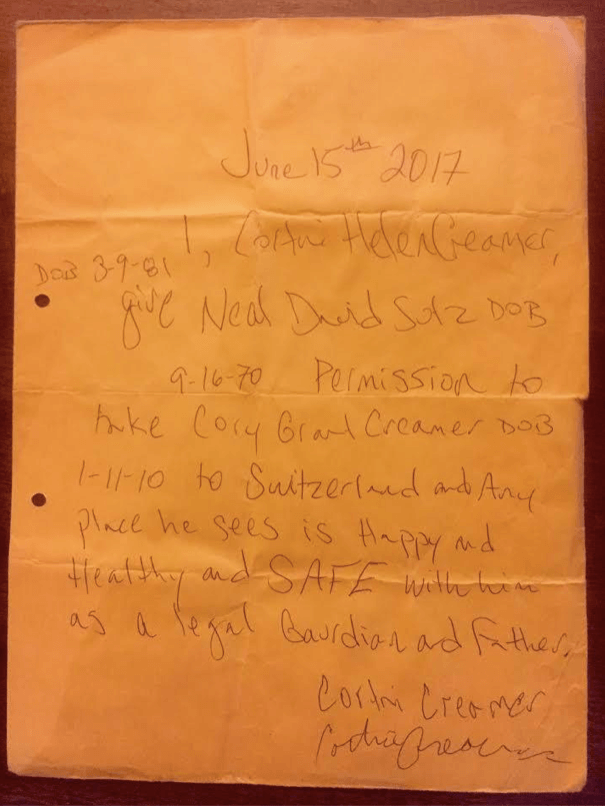 June 15th 2017
I, Cortni Helen Creamer,
DOB 3-9-81
give Neal David Sutz DOB
9-16-70 Permission to
take Cory Grant Creamer DOB
1-11-10 to Switzerland and Any
place he sees is Happy and
Healthy and SAFE with him
as a legal Gaurdian and Father.
Cortni Creamer